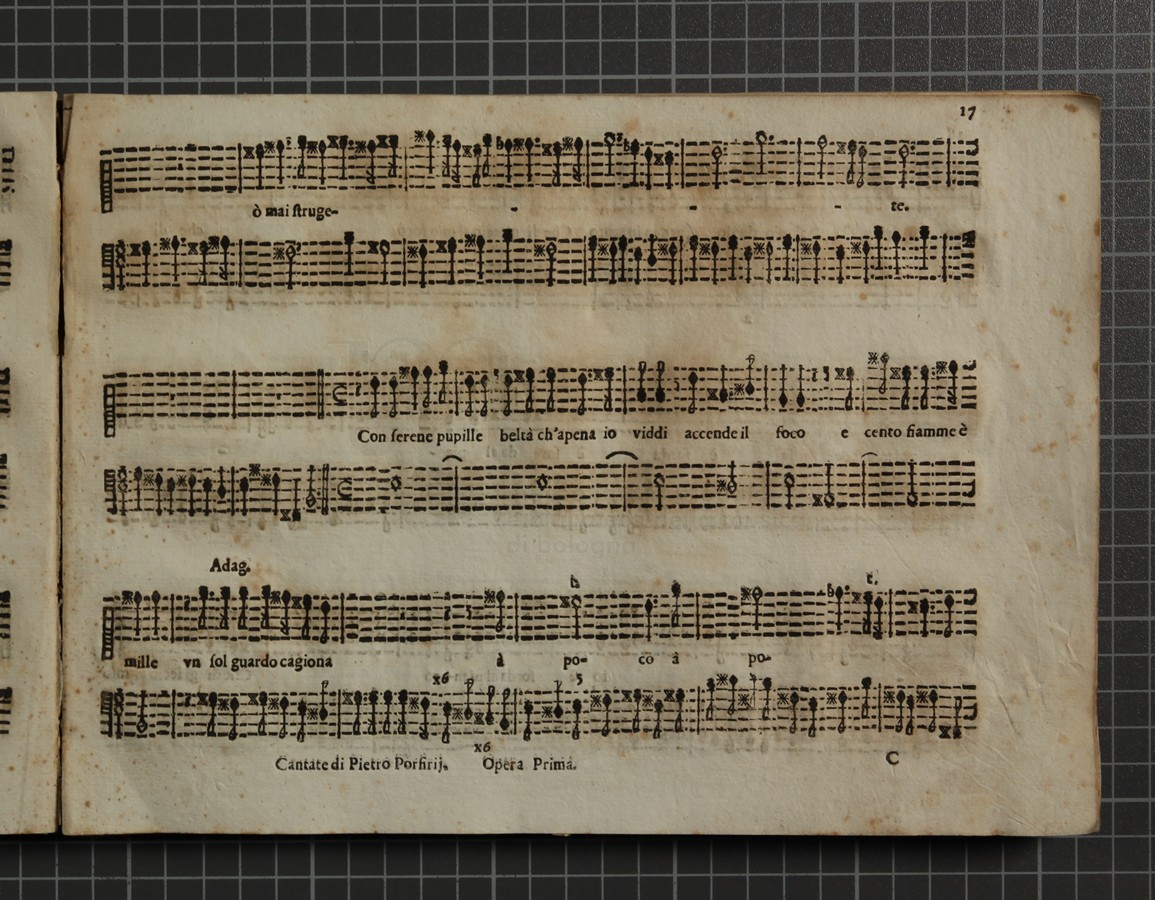 17
ò mai struge- - - - te.
Con serene pupille beltà ch'apena io viddi accende il foco e cento fiamme è
Adag.
mille vn sol guardo cagiona à po- co à po-
x6 5
x6
Cantate di Pietro Porfirij. Opera Prima. C